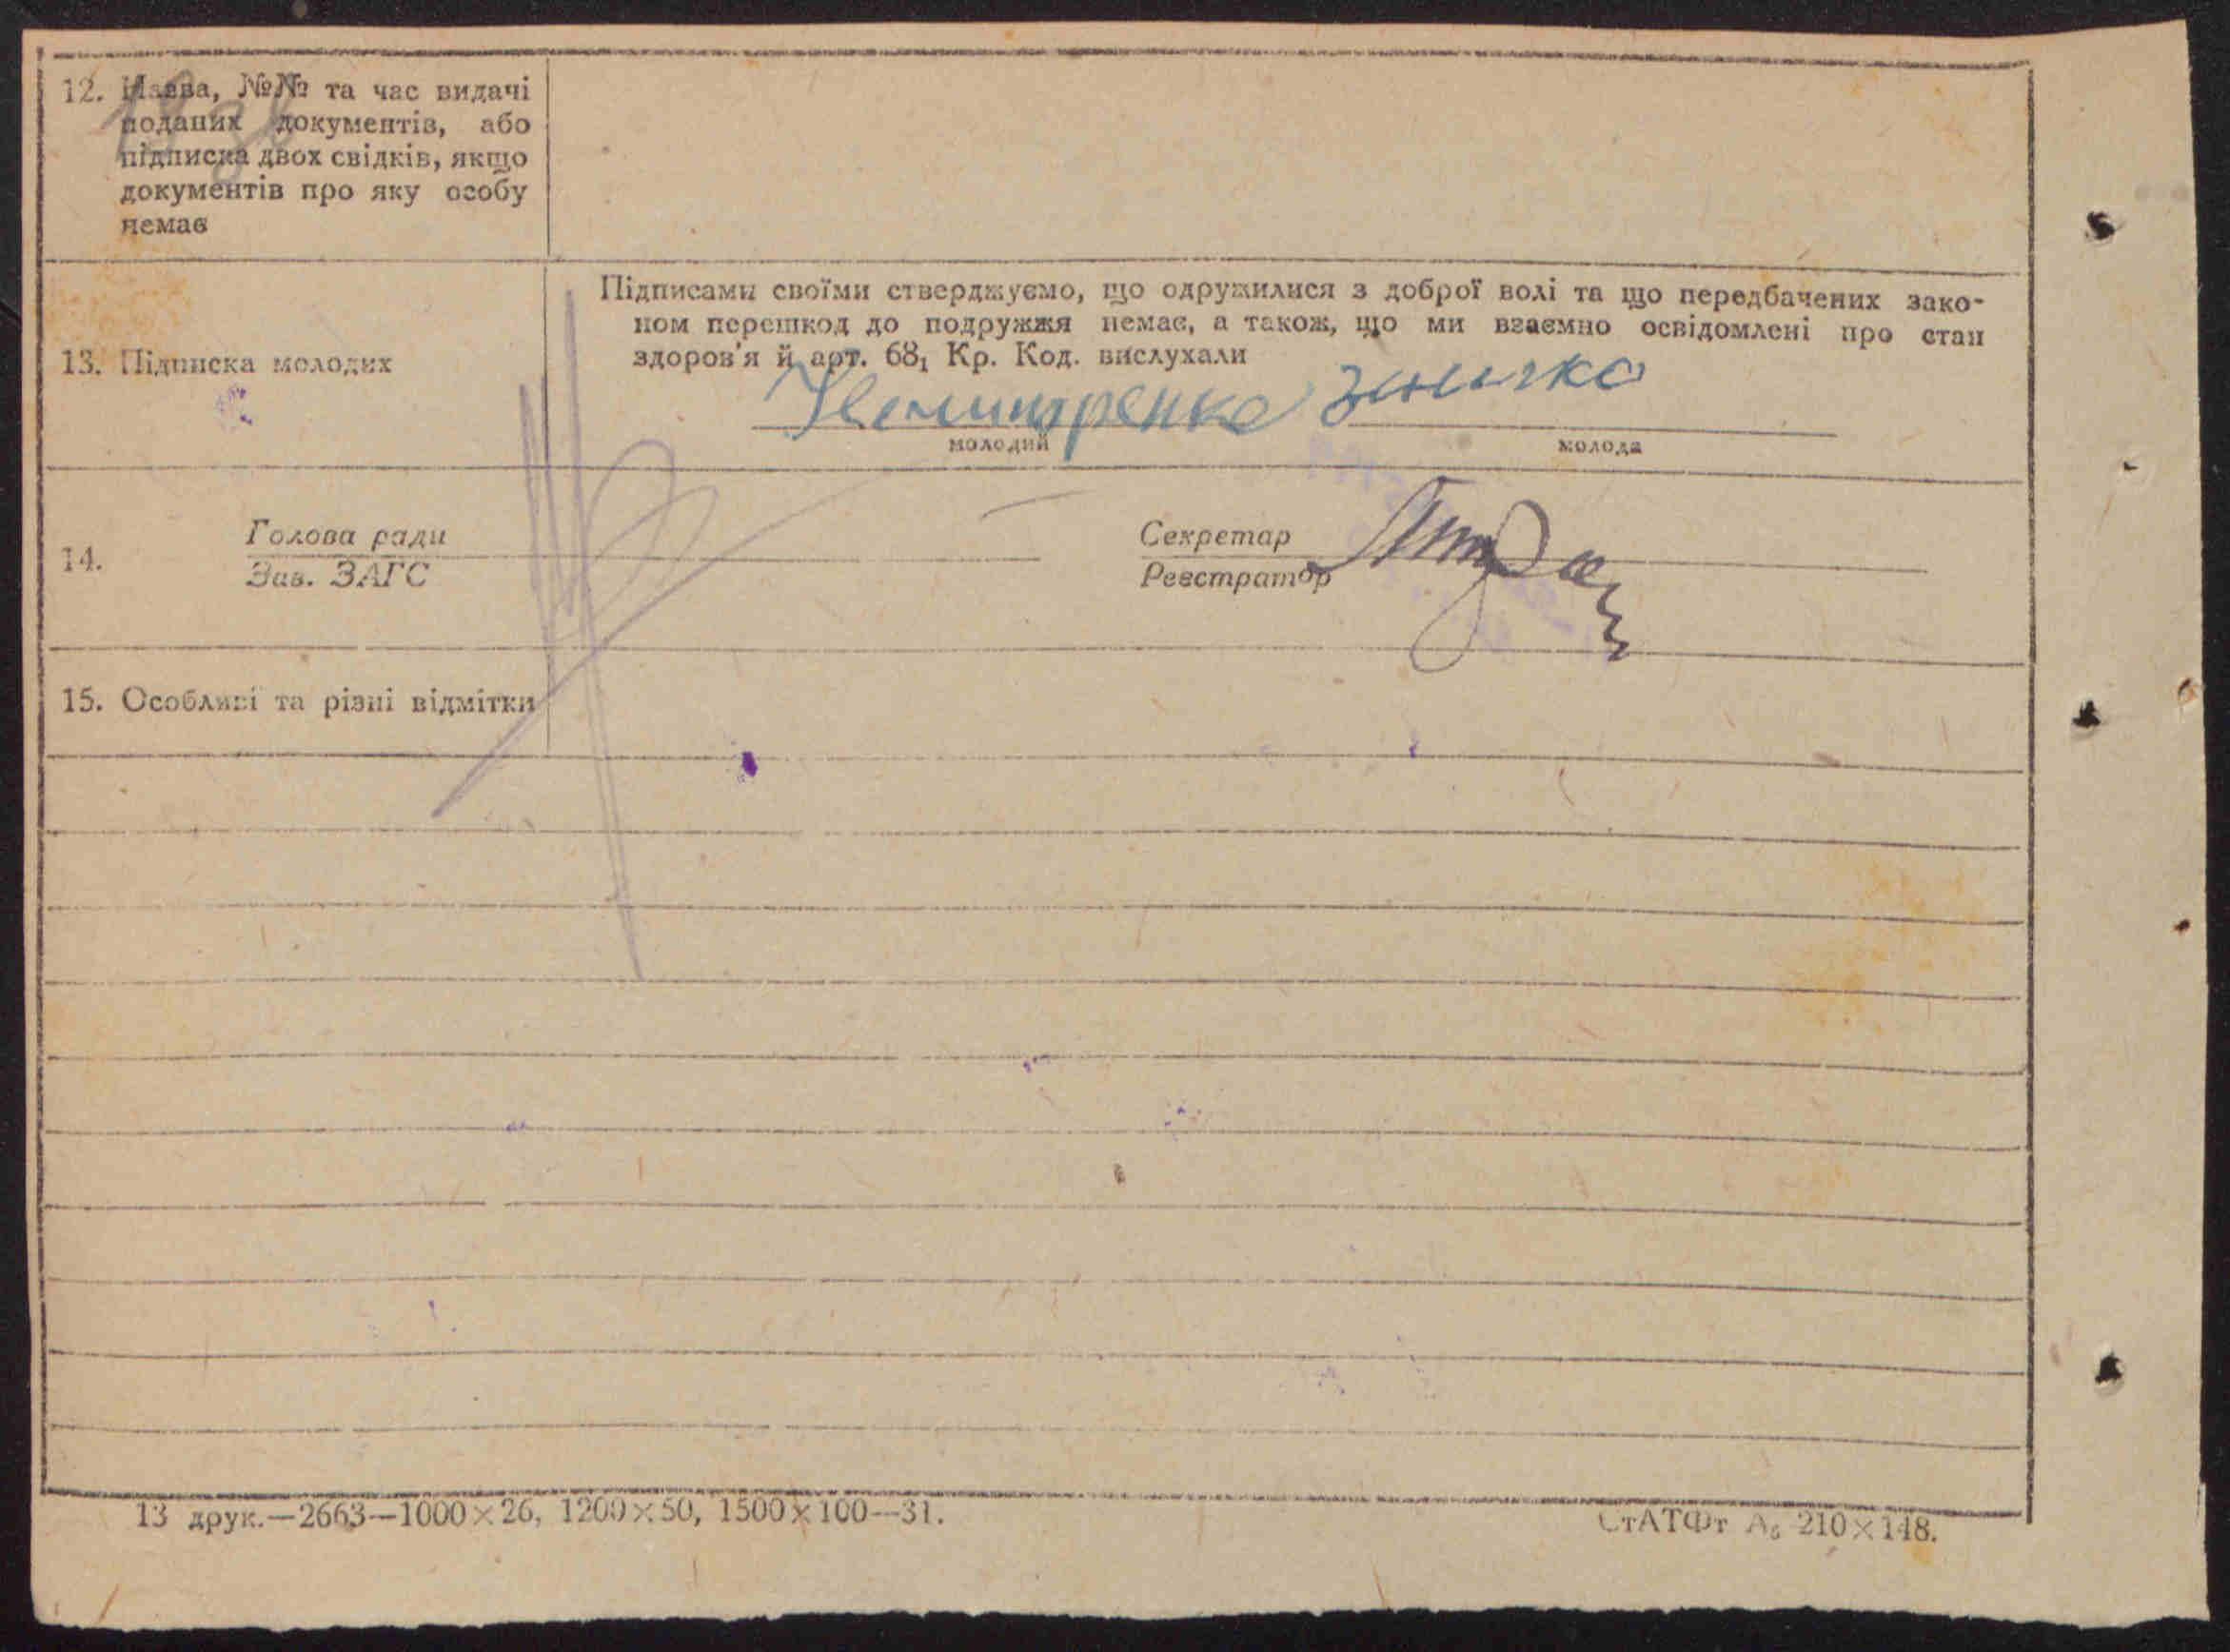 12. Назва, №№ та час видачі
поданих документів, або
підписка двох свідків, якщо
документів про яку особу
немає
Підписами своїми стверджуємо, що одружилися з доброї волі та що передбачених зако-
ном перешкод до подружжя немає, а також, що ми взаємно освідомлені про стан
здоров'я й арт. 68₁ Кр. Код. вислухали
13. Підписка молодих
молодий молода
14. Голова ради Секретар
Зав. ЗАГС Реєстратор
15. Особливі та різні відмітки
13 друк.—2663—1000×26, 1200×50, 1500×100—31.
СтАТФт А₅ 210×148.